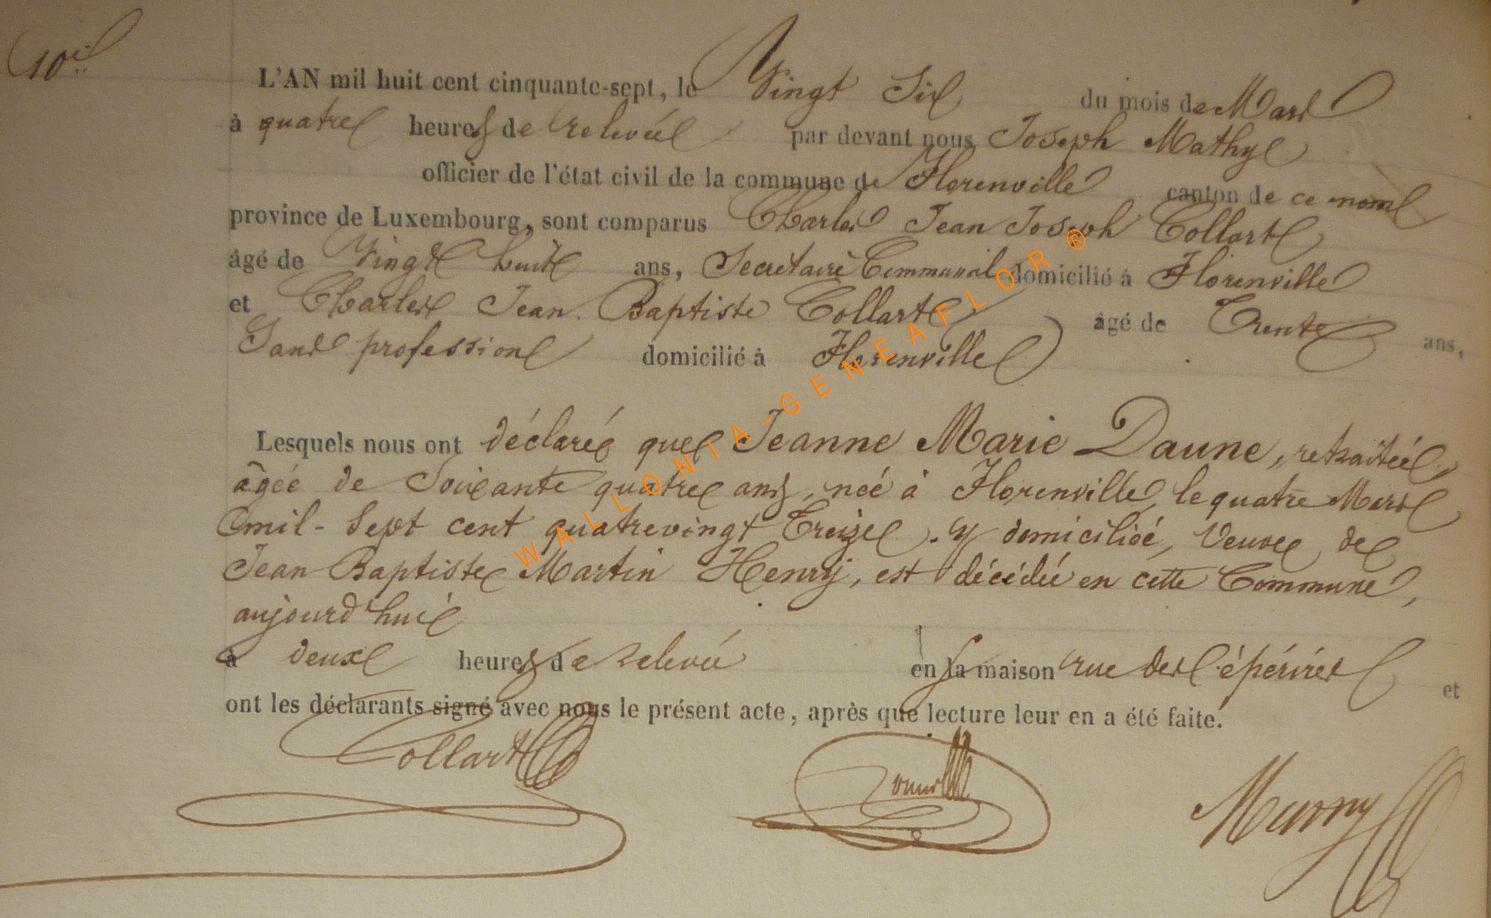 10e
L'AN mil huit cent cinquante-sept, le Vingt Six du mois de Mars
à quatre heures de relevée par devant nous Joseph Mathy
officier de l'état civil de la commune de Florenville canton de ce nom
province de Luxembourg, sont comparus Charles Jean Joseph Collart
âgé de Vingt huit ans, Secrétaire Communal domicilié à Florenville
et Charles Jean Baptiste Collart âgé de Trente ans,
Sans profession domicilié à Florenville
Lesquels nous ont déclaré que Jeanne Marie Daune, retraitée,
âgée de Soixante quatre ans, née à Florenville, le quatre Mars
mil-Sept cent quatrevingt Treize. y domiciliée, Veuve de
Jean Baptiste Martin Henry, est décédée en cette Commune,
aujourd'hui
à deux heures de relevée en sa maison rue des épérires et
ont les déclarants signé avec nous le présent acte, après que lecture leur en a été faite.
Collart
WALLONIA-GENEAFLOR ®